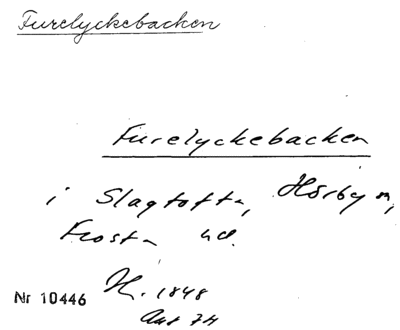 Furelyckebacken
Furelyckebacken
i Slagtofta, Hörby sn,
Frosta hd.
Nr 10446
H. 1848